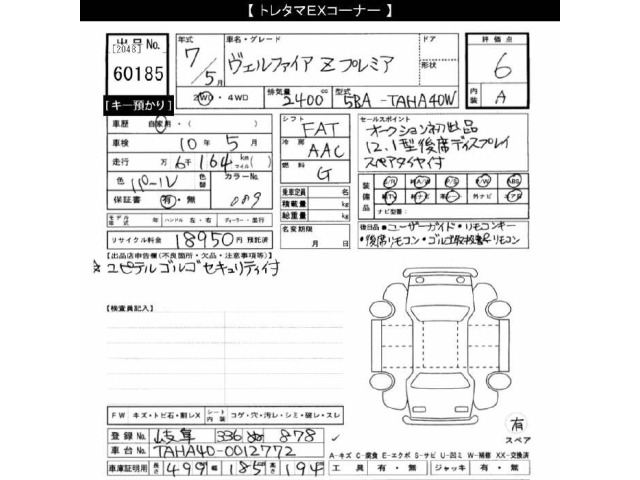 【 トレタマEXコーナー 】
出品No.
[2048]
60185
[キー預かり]
年式 7/5月
車名・グレード ヴェルファイア Zプレミア
ドア 形状
評価点 6
内装 A
2WD・4WD
排気量 2400cc
型式 5BA-TAHA40W
車歴 自家用・( )
車検 10年5月
走行 万6千164km(マイル)
色 パール 色替 カラーNo. 089
保証書 有・無
モデル年式 年 ハンドル 左・右 ディーラー・並行
リサイクル料金 18950円 預託済
シフト FAT
冷房 AAC
燃料 G
乗車定員 名
積載量 kg
総重量 kg
名変期限 月 日
セールスポイント
オークション初出品
12.1型後席ディスプレイ
スペアタイヤ付
装備品 S/R 純A/W P/S P/W ABS
純TV 純ナビ 革シート 外ナビ エアB
ナビ型番:
後日品 ●ユーザーガイド・リモコンキー
・後席リモコン・ゴルゴ取扱書・リモコン
【出品店申告欄(不良箇所・欠品・注意事項等)】
☆ユピテルゴルゴセキュリティ付
【検査員記入】
FW キズ・トビ石・割レX シート内装 コゲ・穴・汚レ・シミ・破レ・スレ
登録No. 岐阜 336 ぬ 878
車台No. TAHA40-0012772
車庫証明用 長さ 499 幅 185 高さ 194
有
スペア
A-キズ C-腐食 E-エクボ S-サビ U-凹ミ W-補修 XX-交換済
工具 有・無 ジャッキ 有・無